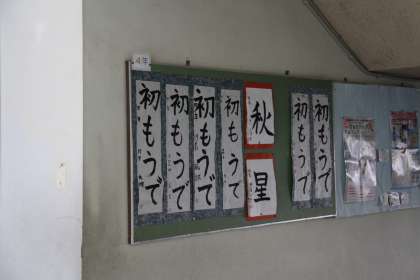 4年
初もうで
初もうで
初もうで
初もうで
秋
星
初もうで
初もうで